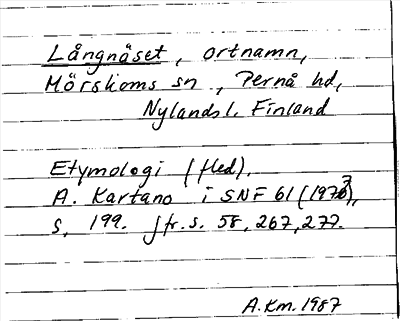 Långnäset, ortnamn,
Mörskoms sn, Pernå hd,
Nylands l. Finland
Etymologi (fled).
A. Kartano i SNF 61 (1973),
s. 199. Jfr. s. 58, 267, 277.
A.Km. 1987